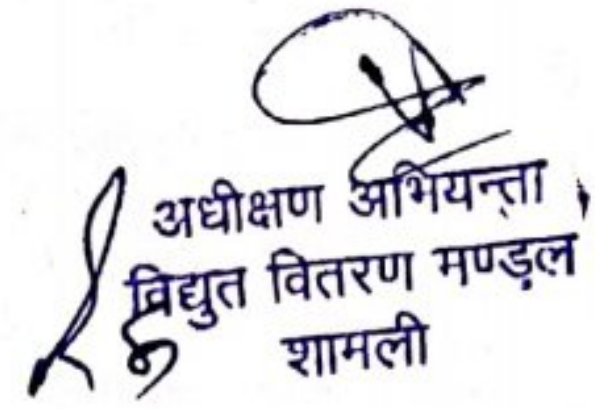 अधीक्षण अभियन्ता
विद्युत वितरण मण्ड़ल
शामली